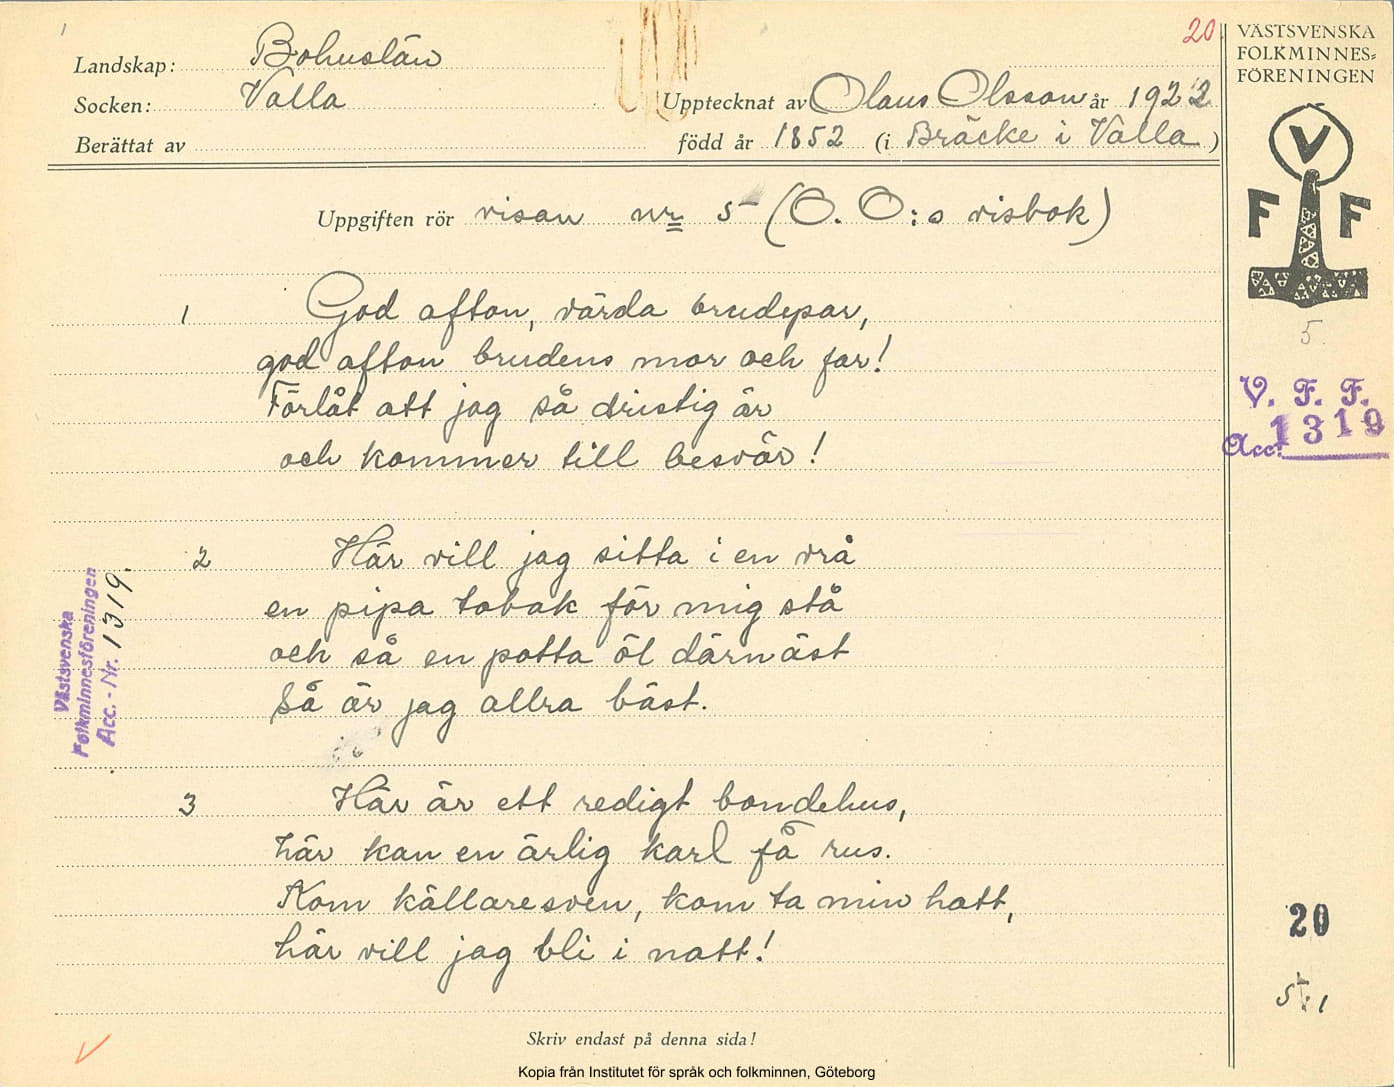 20
VÄSTSVENSKA
FOLKMINNES=
FÖRENINGEN
Landskap: Bohuslän
Socken: Valla
Upptecknat av Olaus Olsson år 1922
Berättat av
född år 1852 (i Bräcke i Valla)
V
F F
Uppgiften rör visan nr 5 (O. O:s visbok)
5.
V. F. F.
Acc. 1319
1 God afton, värda brudepar,
god afton brudens mor och far!
Förlåt att jag så dristig är
och kommer till besvär!
2 Här vill jag sitta i en vrå
en pipa tobak för mig stå
och så en potta öl därnäst
Så är jag allra bäst.
Västsvenska
Folkminnesföreningen
Acc. - Nr. 1319.
3 Här är ett redigt bondehus,
här kan en ärlig karl få rus.
Kom källaresven, kom ta min hatt,
här vill jag bli i natt!
20
Skriv endast på denna sida!
Kopia från Institutet för språk och folkminnen, Göteborg